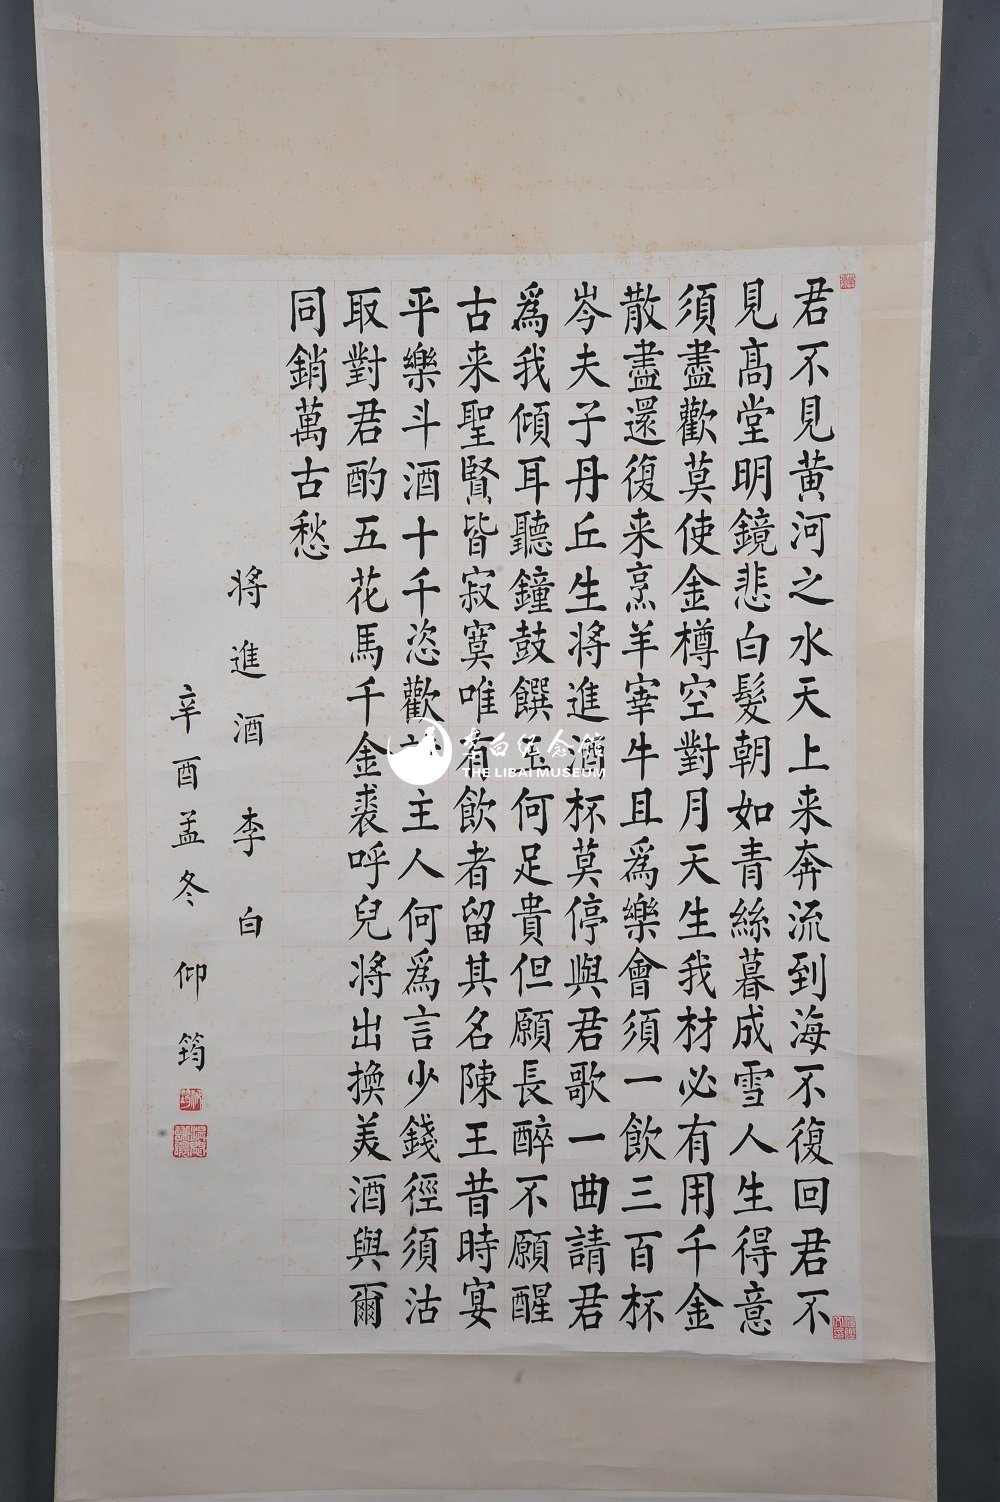 君不見黄河之水天上来奔流到海不復回君不
見髙堂明鏡悲白髮朝如青絲暮成雪人生得意
須盡歡莫使金樽空對月天生我材必有用千金
散盡還復来烹羊宰牛且爲樂會須一飲三百杯
岑夫子丹丘生将進酒杯莫停與君歌一曲請君
爲我傾耳聽鐘鼓饌玉何足貴但願長醉不願醒
古来聖賢皆寂寞唯有飲者留其名陳王昔時宴
平樂斗酒十千恣歡謔主人何爲言少錢徑須沽
取對君酌五花馬千金裘呼兒将出換美酒與爾
同銷萬古愁
将進酒 李白
辛酉孟冬 仰筠
李白纪念馆
THE LIBAI MUSEUM